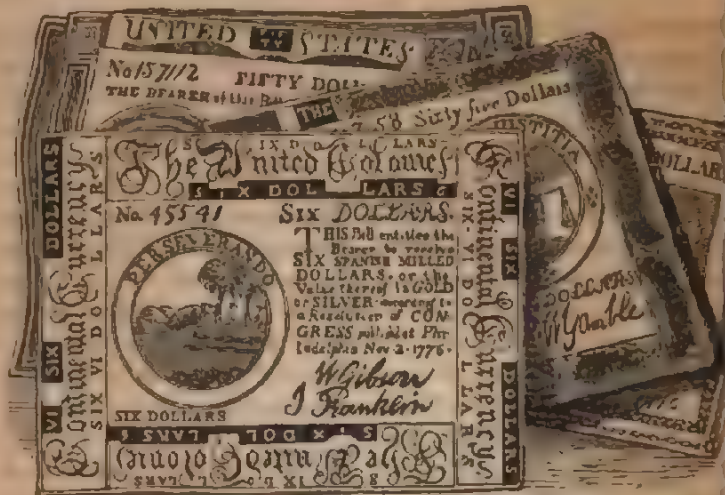 UNITED STATES
No 157112 FIFTY DOLL
THE BEARER of this Bill
THE
Sixty five Dollars
JUSTITIA
DOLLAR
DOLLARS
W Gamble
SIX DOLLARS
The United Colonies
SIX DOLLARS
No. 45541 SIX DOLLARS.
THIS Bill entitles the
Bearer to receive
SIX SPANISH MILLED
DOLLARS, or the
Value thereof in GOLD
or SILVER according to
a Resolution of CON-
GRESS published at Phi-
ladelphia Nov. 2. 1776.
W Gibson
J Franklin
PERSEVERANDO
SIX DOLLARS
VI SIX DOLLARS
Continental Currency
SIX VI DOLLARS
Continental Currency
SIX VI DOLLARS
VI SIX DOLLARS
SIX DOLLARS
The United Colonies
SIX DOLLARS